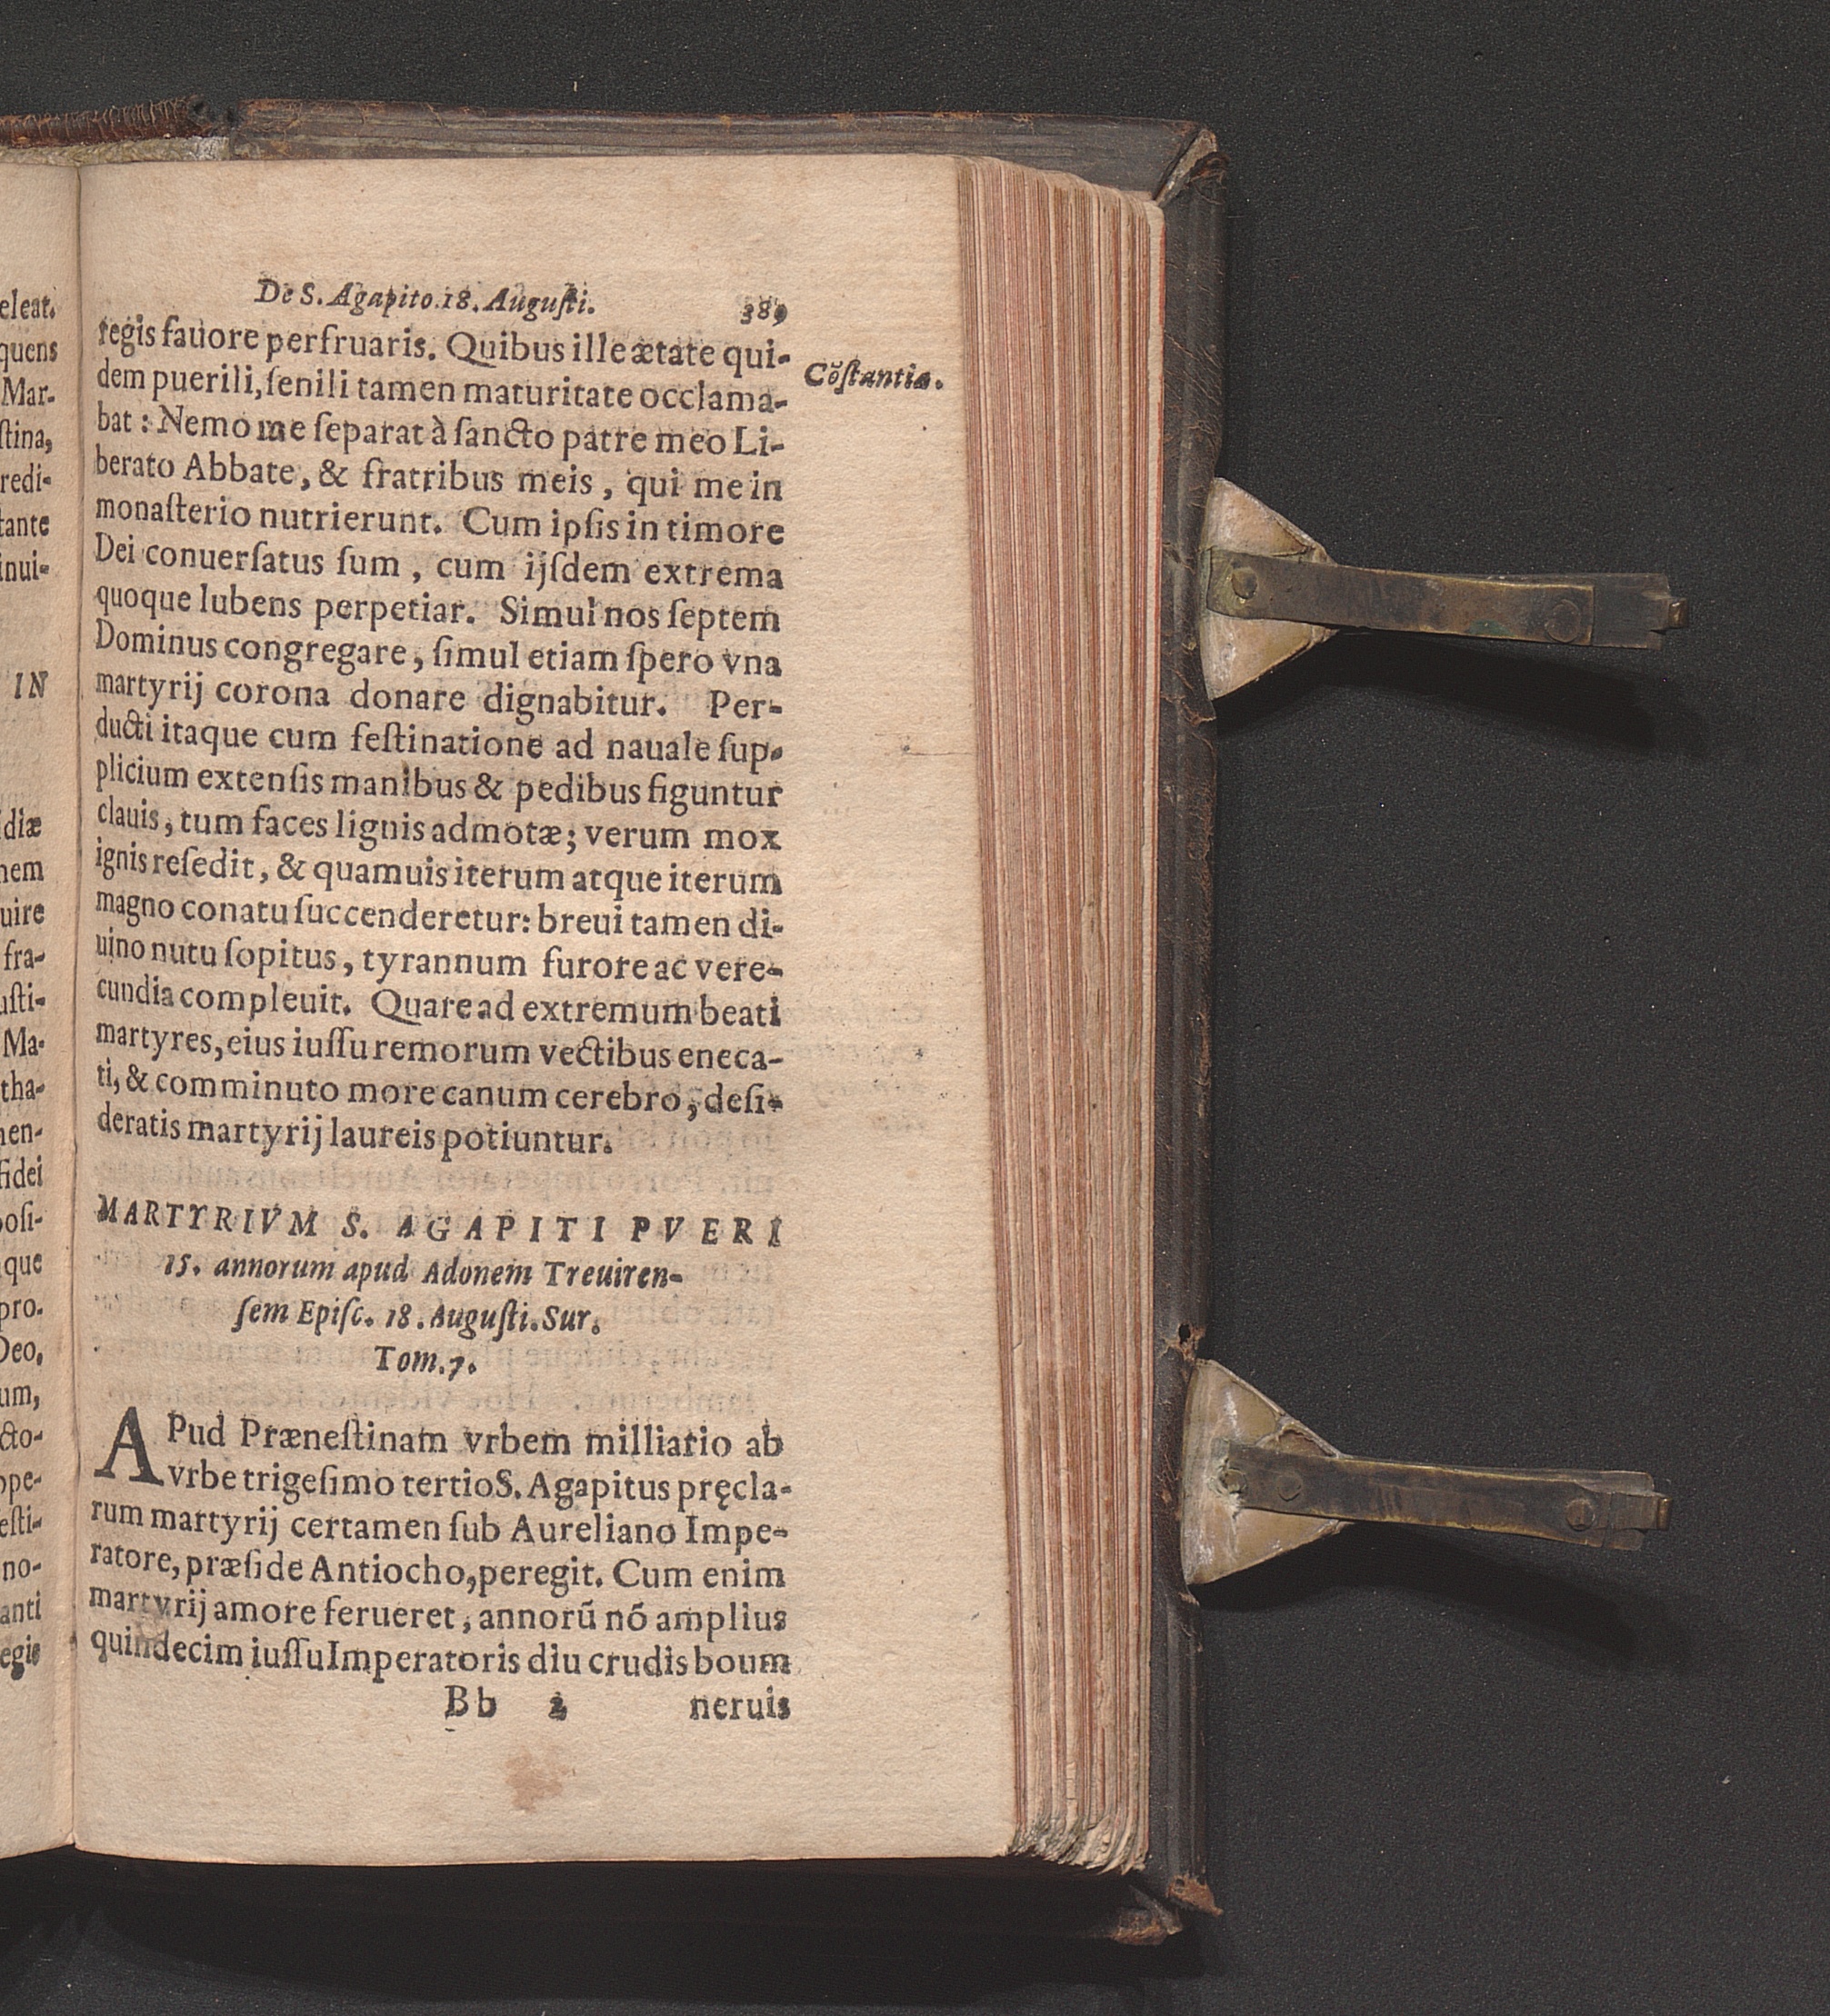 eleat.
quens
Mar-
ſtina,
redi-
tante
inui-
IN
diæ
nem
uire
fra-
uſti-
Ma-
tha-
nen-
fidei
oſi-
que
pro.
Deo,
um,
cto-
ope-
eſti-
no-
anti
egis
De S. Agapito. 18. Auguſti. 389
regis fauore perfruaris. Quibus ille ætate qui-
Cõſtantia.
dem puerili, ſenili tamen maturitate occlama-
bat : Nemo me ſeparat à ſancto patre meo Li-
berato Abbate, & fratribus meis, qui me in
monaſterio nutrierunt. Cum ipſis in timore
Dei conuerſatus ſum, cum ijſdem extrema
quoque lubens perpetiar. Simul nos ſeptem
Dominus congregare, ſimul etiam ſpero vna
martyrij corona donare dignabitur. Per-
ducti itaque cum feſtinatione ad nauale ſup-
plicium extenſis manibus & pedibus figuntur
clauis, tum faces lignis admotæ; verum mox
ignis reſedit, & quamuis iterum atque iterum
magno conatu ſuccenderetur: breui tamen di-
uino nutu ſopitus, tyrannum furore ac vere-
cundia compleuit. Quare ad extremum beati
martyres, eius iuſſu remorum vectibus eneca-
ti, & comminuto more canum cerebro, deſi-
deratis martyrij laureis potiuntur.
MARTYRIVM S. AGAPITI PVERI
15. annorum apud Adonem Treuiren-
ſem Epiſc. 18. Auguſti. Sur.
Tom. 7.
APud Præneſtinam vrbem milliario ab
vrbe trigeſimo tertio S. Agapitus pręcla-
rum martyrij certamen ſub Aureliano Impe-
ratore, præſide Antiocho, peregit. Cum enim
martyrij amore ferueret, annorũ nõ amplius
quindecim iuſſu Imperatoris diu crudis boum
Bb 2 neruis